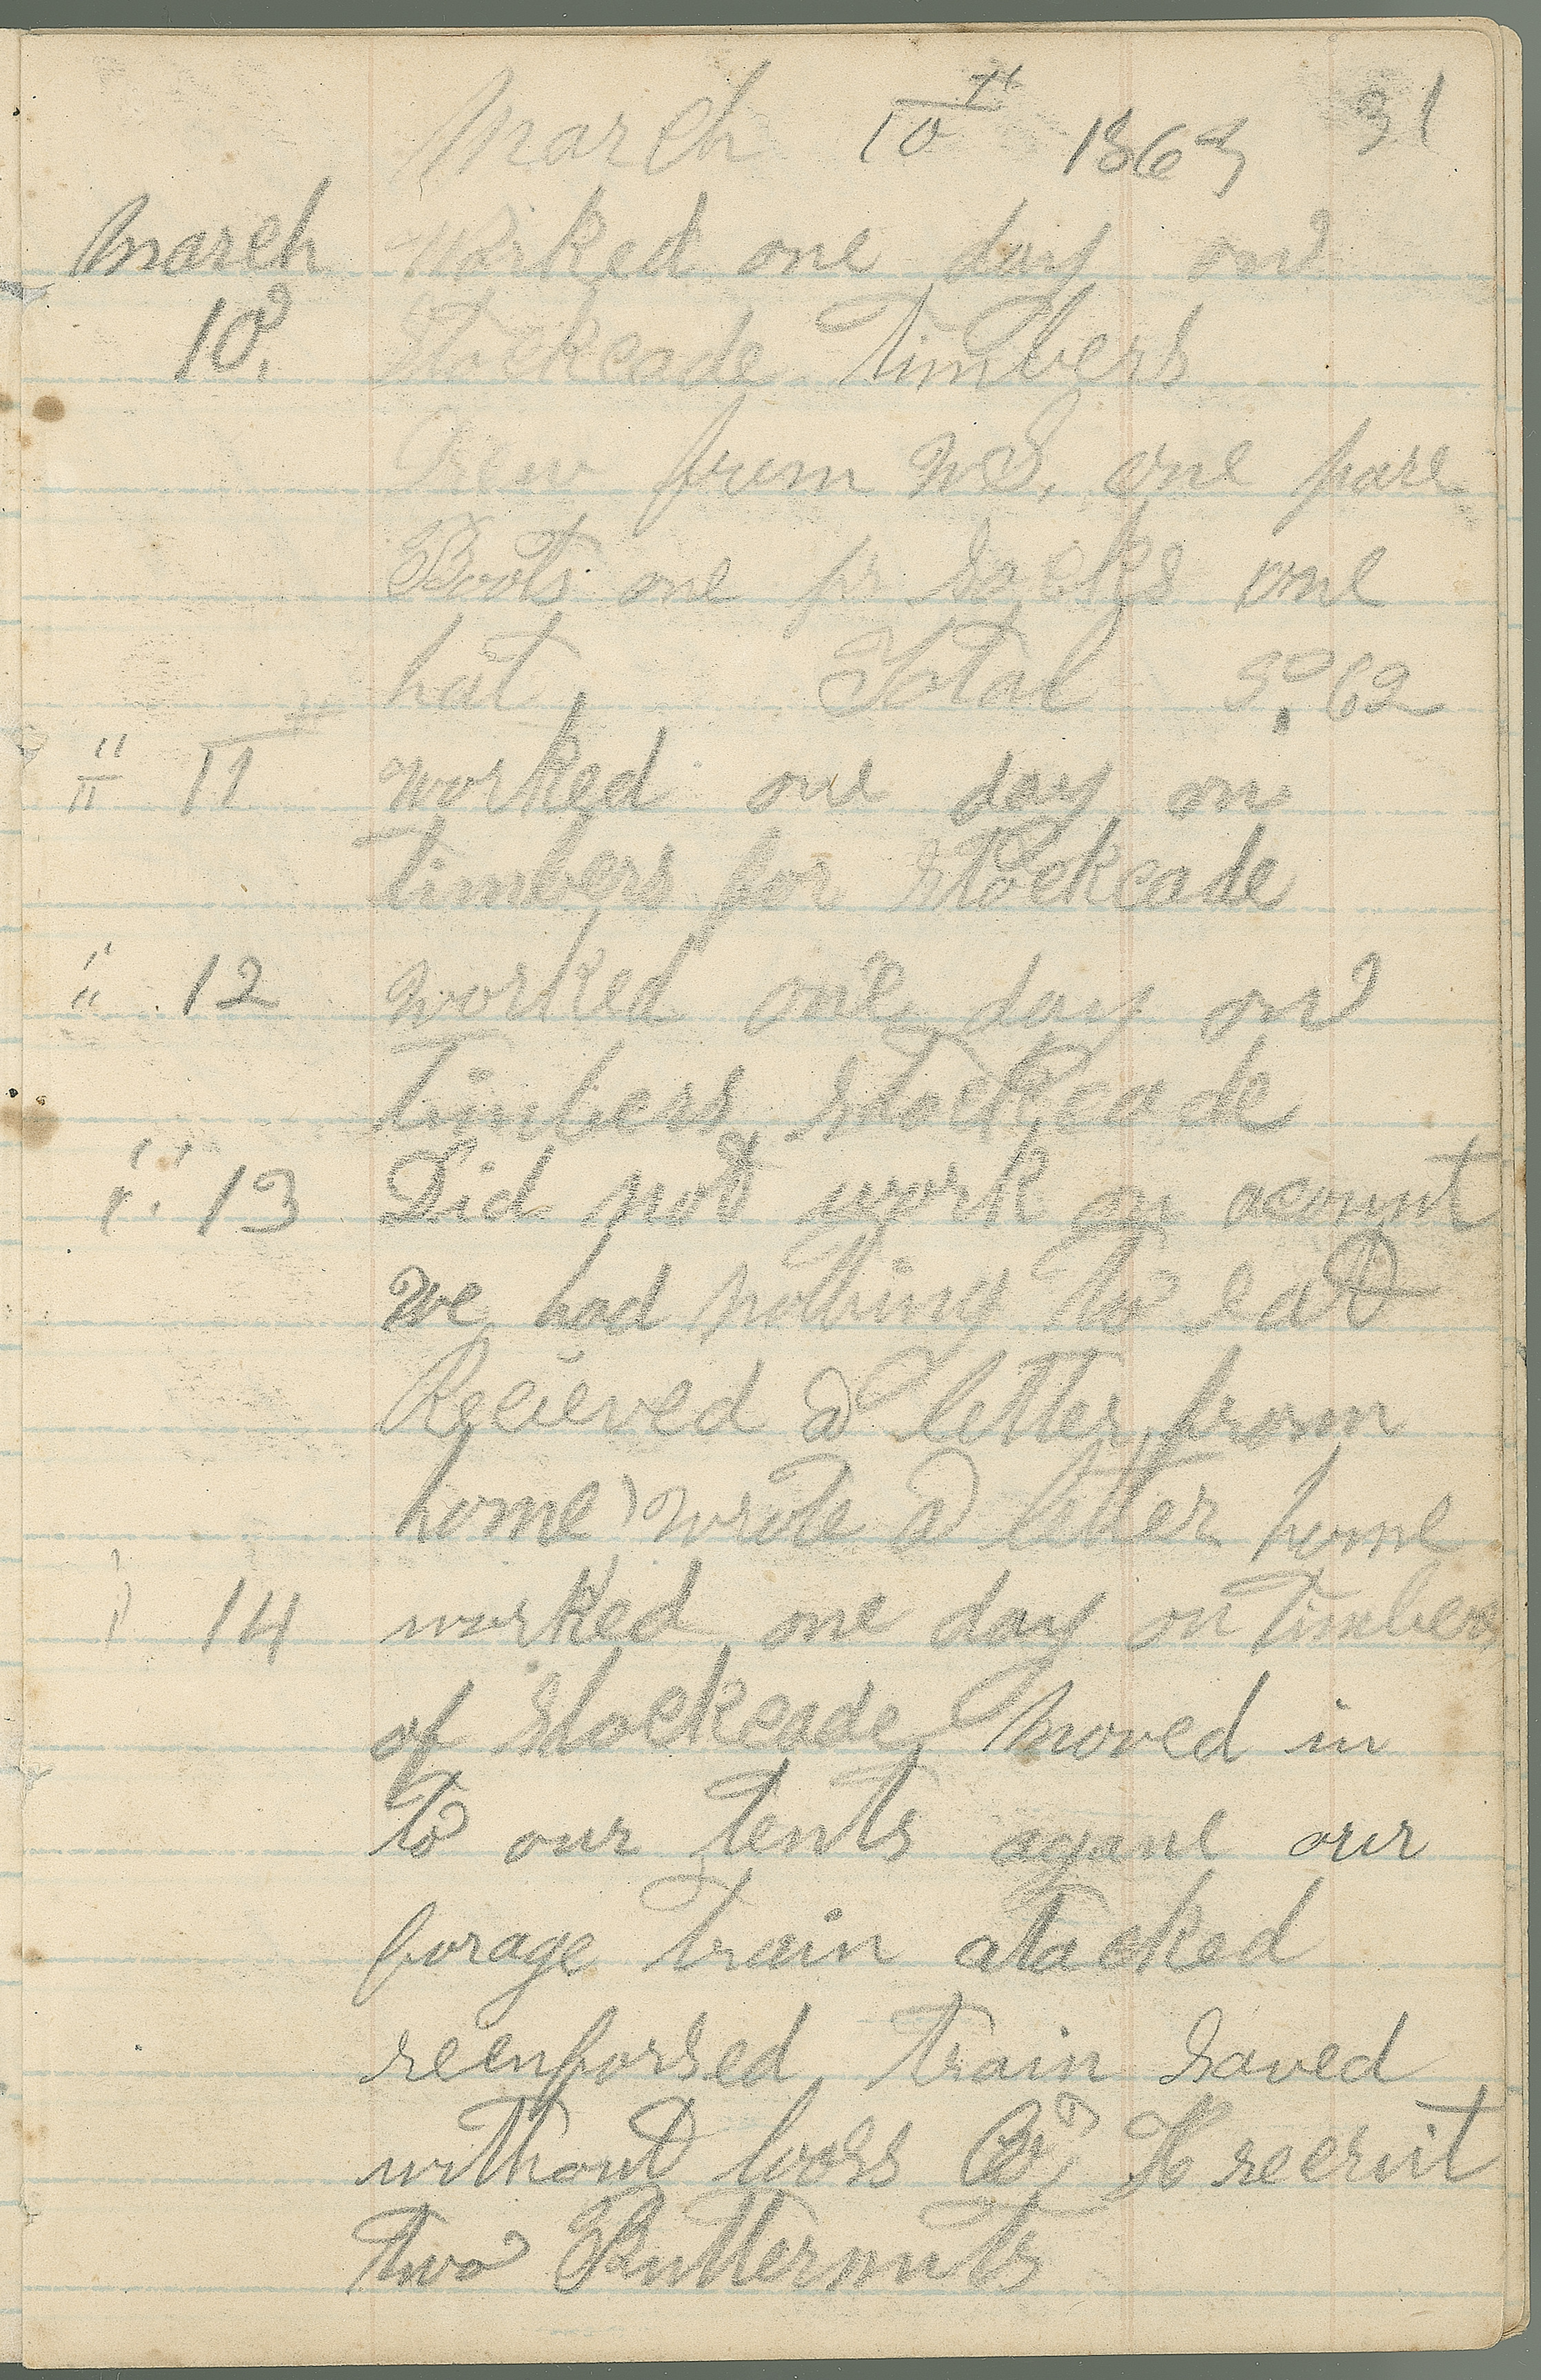 March 10th 1863 31
March Worked one day on
10. Stockeade Timbers
Drew from U.S. one pare
Boots one pr Socks one
hat Total 3.62
" 11th worked one day on
timbers for Stockeade
" 12 worked one day on
timbers Stockeade
" 13 Did not work on acount
we had nothing to eat
Recieved a letter from
home wrote a letter home
" 14 worked one day on Timbers
of Stockeade Moved in
to our tents agane our
forage train atacked
reenforsed train saved
without loss Co. K recruit
two Butternuts